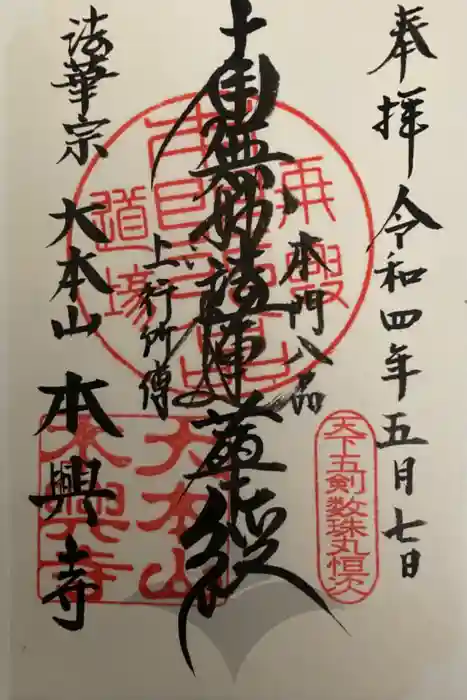 奉拝 令和四年五月七日
天下五剣数珠丸恒次
本門八品
南無妙法蓮華経
上行所傳
法華宗 大本山 本興寺
大本山
本興寺